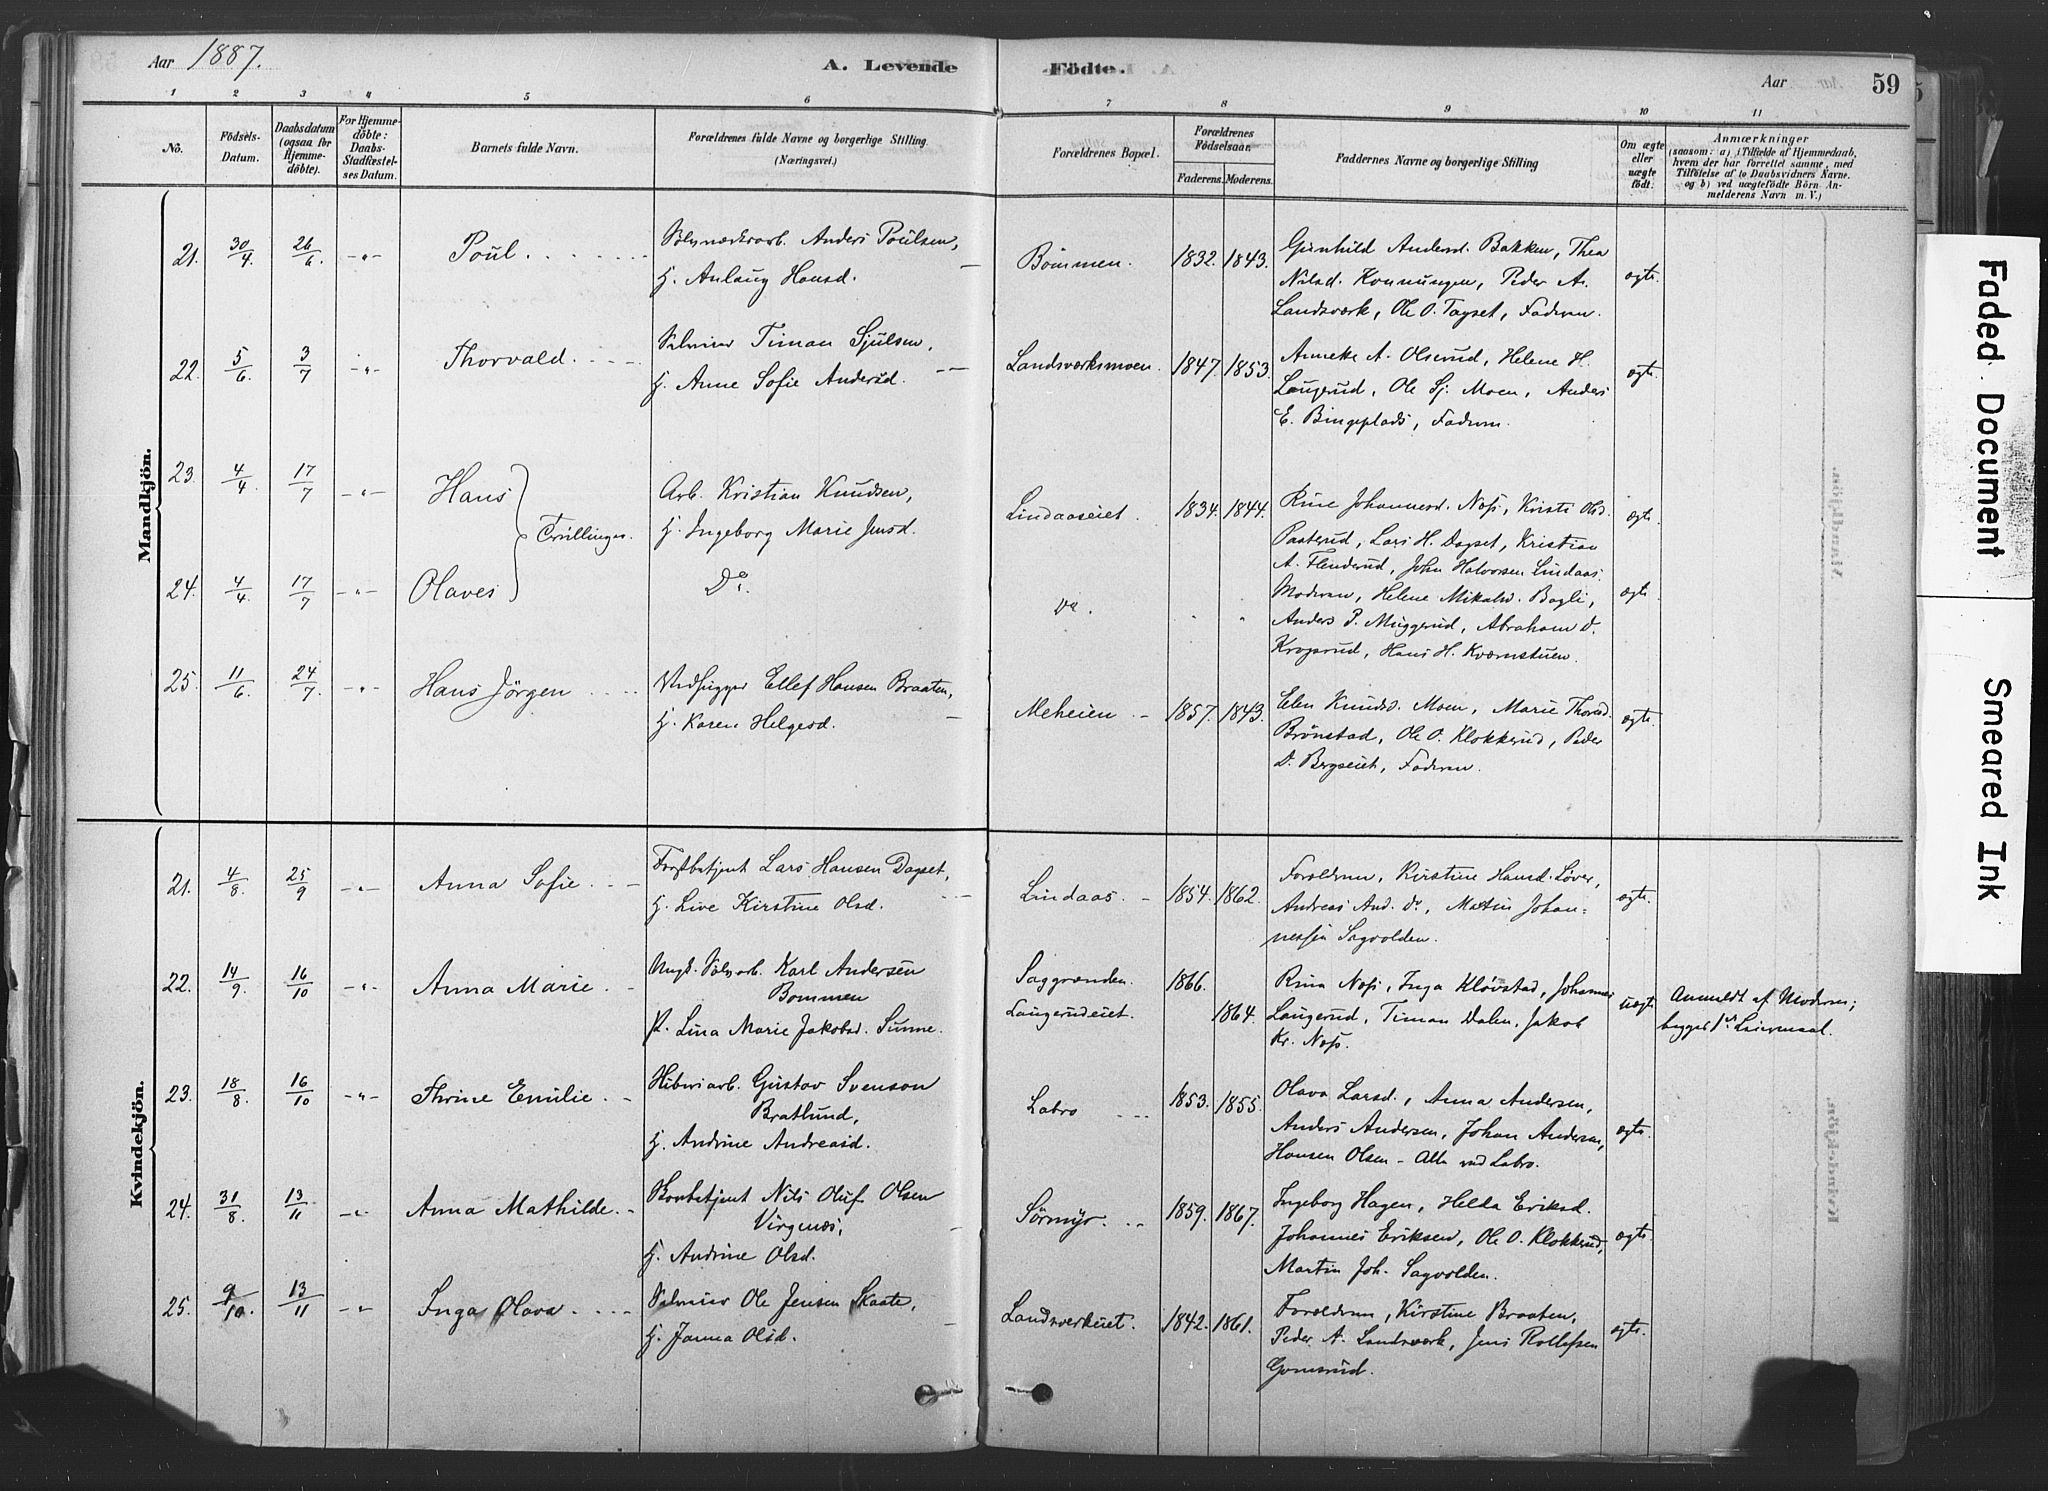 Aar 1887.
A. Levende Födte.
Aar
59
1 2 3 4 5 6 7 8 9 10 11
No.
Födsels-
Datum.
Daabsdatum
(ogsaa for
Hjemme-
döbte).
For Hjemme-
döbte:
Daabs-
Stadfæstel-
ses Datum.
Barnets fulde Navn.
Forældrenes fulde Navne og borgerlige Stilling.
(Næringsvei.)
Forældrenes Bopæl.
Forældrenes
Födselsaar.
Faderens. Moderens.
Faddernes Navne og borgerlige Stilling
Om ægte
eller
uægte
födt.
Anmærkninger
(saasom: a) i Tilfælde af Hjemmedaab,
hvem der har forrettet samme, med
Tilföielse af to Daabsvidners Navne.
og b) ved uægtefödte Börn An-
melderens Navn m. V.)
Mandkjön.
21. 30/4 26/6 -"- Poul.
Sölvværksarb. Anders Poulsen,
H. Anlaug Hansd.
Bommen. 1832. 1843.
Gunhild Andersd. Bakken, Thea
Nilsd. Konnungen, Peder A.
Landsværk, Ole O. Tagset, Faderen.
ægte.
22. 5/6 3/7 -"- Thorvald
Selveier Timan Sjulsen,
H. Anne Sofie Andersd.
Landsværksmoen. 1847. 1853.
Annette A. Olserud, Helene H.
Laugerud, Ole Sj. Moen, Anders
E. Bingeplads, Faderen.
ægte.
23. 4/4 17/7 -"- Hans
Tvillinger.
Arb. Kristian Knudsen,
H. Ingeborg Marie Jensd.
Lindaaseiet. 1834. 1844.
Rine Johannesd. Noss, Kirsti Olsd.
Paaterud, Lars H. Dagset, Kristian
A. Flenderud, John Halvorsen Lindaas.
ægte.
24. 4/4 17/7 -"- Olaves
Do.
Do. " "
Moderen, Helene Mikalsd. Bagli,
Anders P. Muggerud, Abraham D.
Krogsrud, Hans H. Kværnstuen.
ægte.
25. 11/6 24/7 -"- Hans Jörgen
Vedhugger Ellef Hansen Braaten,
H. Karen Helgesd.
Meheien 1857. 1843.
Elen Knudsd. Moen, Marie Thorsd.
Brönstad, Ole O. Klokkerud, Peder
D. Bergseiet, Faderen.
ægte.
Kvindekjön.
21. 4/8 25/9 -"- Anna Sofie
Forstbetjent Lars Hansen Dagset,
H. Live Kirstine Olsd.
Lindaas. 1854. 1862.
Forældrene, Kirstine Hansd. Löver,
Andreas And. Do, Martin Johan-
nessen Sagvolden.
ægte.
22. 14/9 16/10 -"- Anna Marie
Ungk. Sölvarb. Karl Andersen
Bommen
P. Lina Marie Jakobsd. Sunne.
Saggrenden.
Laugerudeiet.
1866.
1864.
Rina Noss, Inga Klövstad, Johannes
Laugerud, Timan Dalen, Jakob
Kr. Noss.
uægte
Anmeldt af Moderen;
begges 1ste Leiermaal.
23. 18/8 16/10 -"- Thrine Emilie
Sliberiarb. Gustav Svenson
Bratlund,
H. Andrine Andreasd.
Labro 1853. 1855.
Olava Larsd., Anna Andersen,
Anders Andersen, Johan Andersen,
Hansen Olsen - Alle ved Labro.
ægte.
24. 31/8 13/11 -"- Anna Mathilde
Banebetjent Nils Oluf Olsen
Virgenæs,
H. Andrine Olsd.
Sörmyr. 1859. 1867.
Ingeborg Hagen, Helda Eriksd.
Johannes Eriksen, Ole O. Klokkerud,
Martin Joh. Sagvolden.
ægte.
25. 9/10. 13/11 -"- Inga Olava
Selveier Ole Jensen Skaate,
H. Janna Olsd.
Landsverkeiet. 1842. 1861.
Forældrene, Kirstine Braaten,
Peder A. Landsværk, Jens Rollefsen
Gomsrud.
ægte.
Faded Document
Smeared Ink